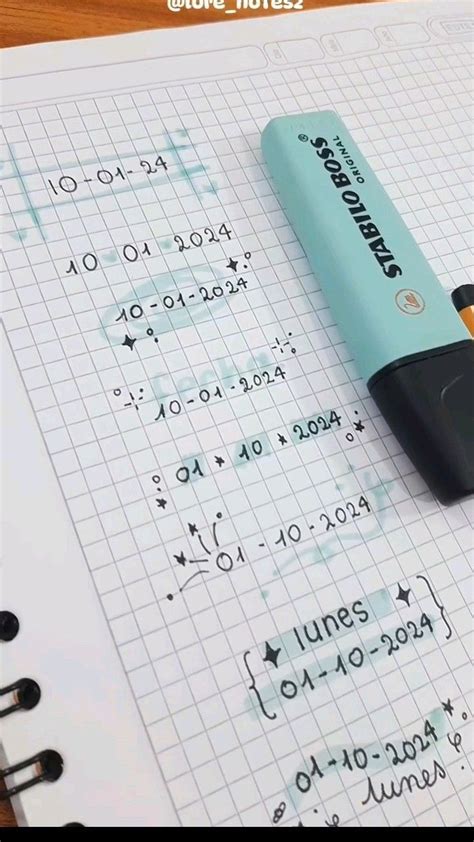 @lore_notes2
10-01-24
10 01 2024
10-01-2024
Fecha
10-01-2024
01 * 10 * 2024
01 - 10 - 2024
lunes
01-10-2024
01-10-2024
lunes
STABILO BOSS
ORIGINAL